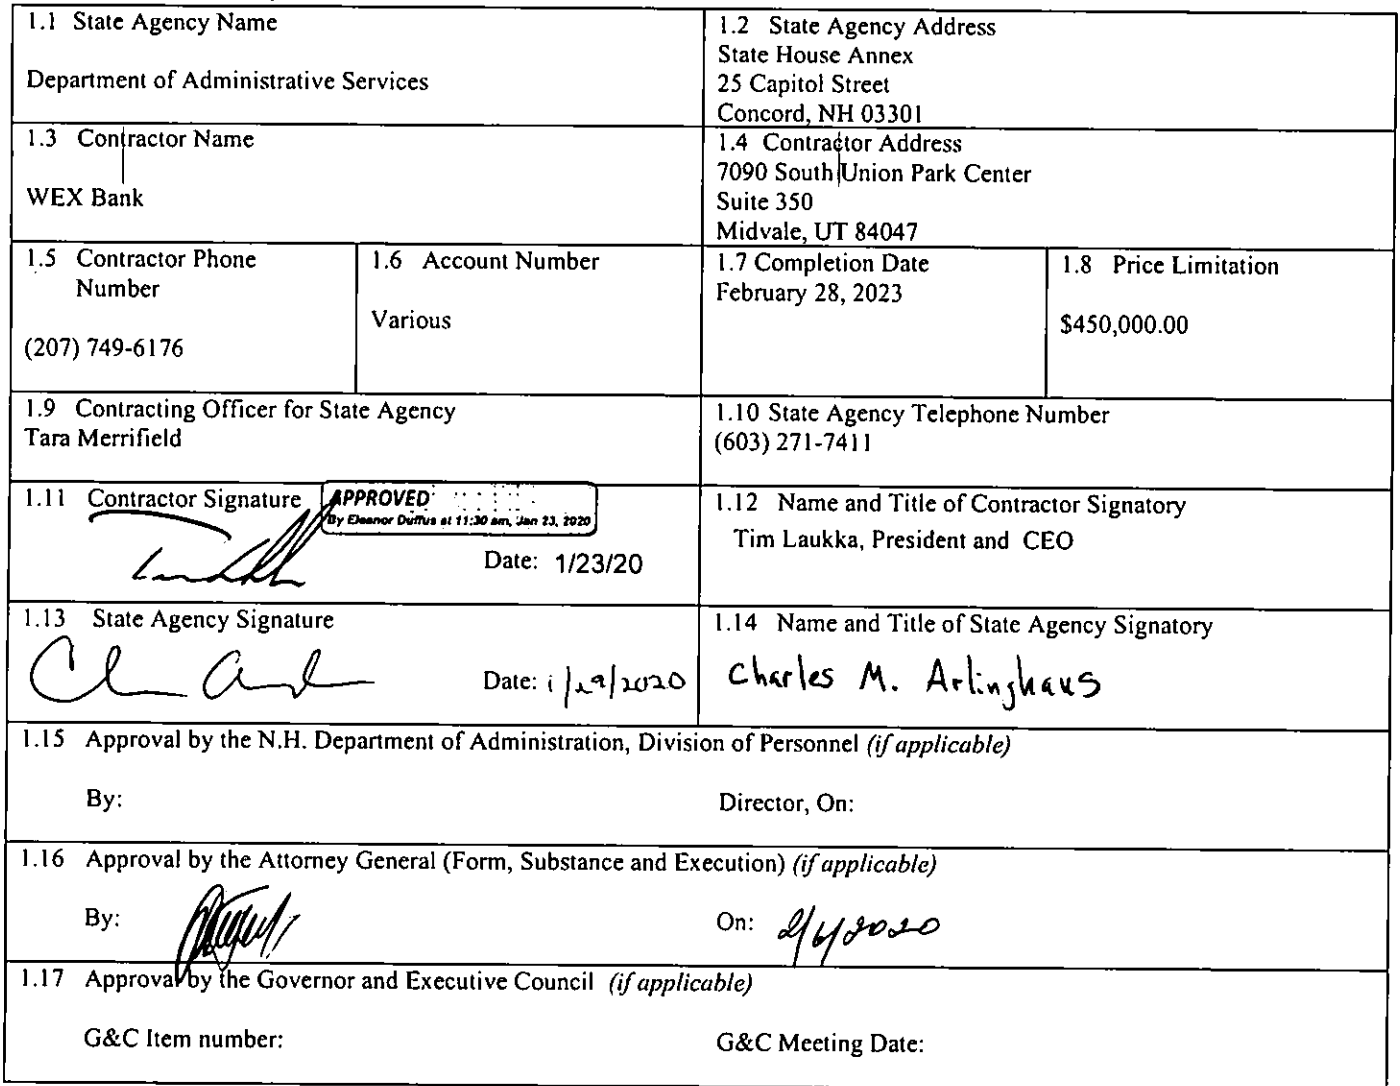 1.1 State Agency Name
Department of Administrative Services
1.2 State Agency Address
State House Annex
25 Capitol Street
Concord, NH 03301
1.3 Contractor Name
WEX Bank
1.4 Contractor Address
7090 South Union Park Center
Suite 350
Midvale, UT 84047
1.5 Contractor Phone
Number
(207) 749-6176
1.6 Account Number
Various
1.7 Completion Date
February 28, 2023
1.8 Price Limitation
$450,000.00
1.9 Contracting Officer for State Agency
Tara Merrifield
1.10 State Agency Telephone Number
(603) 271-7411
1.11 Contractor Signature
APPROVED
By Eleanor Duffus at 11:30 am, Jan 23, 2020
Date: 1/23/20
1.12 Name and Title of Contractor Signatory
Tim Laukka, President and CEO
1.13 State Agency Signature
Date: 1/29/2020
1.14 Name and Title of State Agency Signatory
Charles M. Arlinghaus
1.15 Approval by the N.H. Department of Administration, Division of Personnel (if applicable)
By:
Director, On:
1.16 Approval by the Attorney General (Form, Substance and Execution) (if applicable)
By:
On: 2/6/2020
1.17 Approval by the Governor and Executive Council (if applicable)
G&C Item number:
G&C Meeting Date: